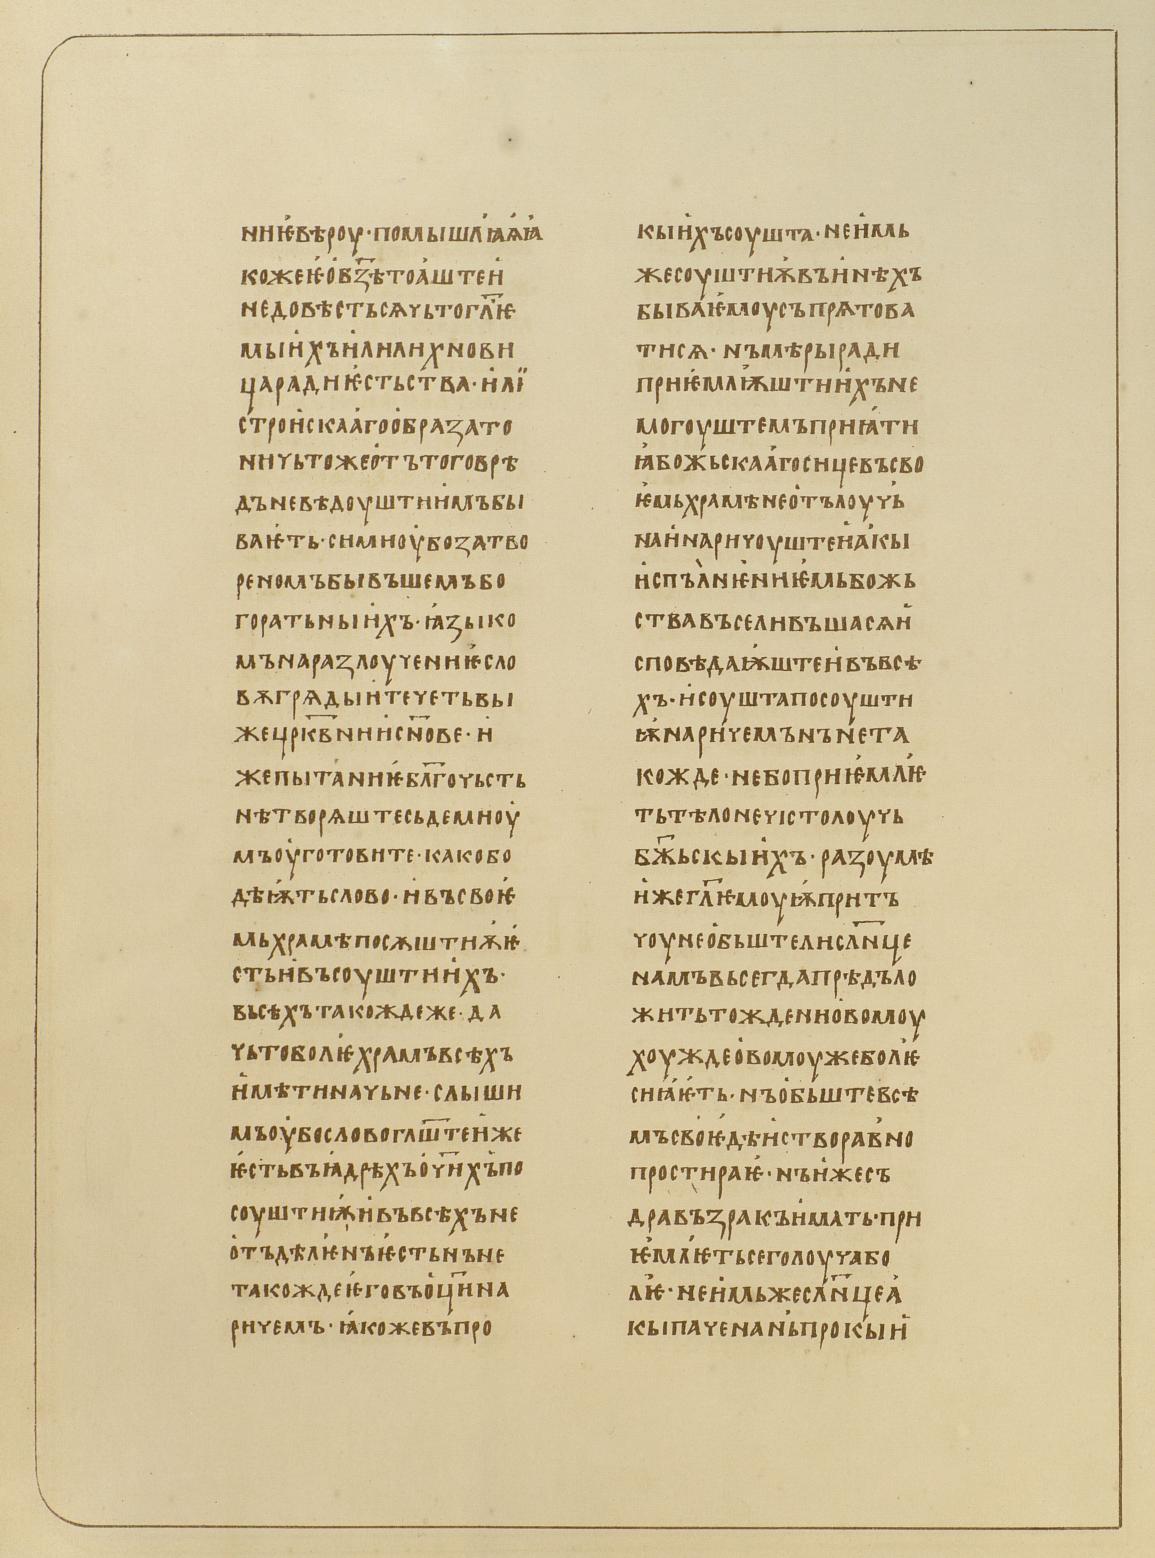 ннѥвѣроу·помышлꙗѧꙗ
кожеѥ҅обꙁѣтоаштеи
недовѣстьсѧчьтоглѥ
мыихъилилихнови
царадиѥстьства·илї
строискаагообраꙁато
ничьтожеотътоговрѣ
дъневѣдоуштиимъбы
ваѥть·симноубоꙁатво
реномъбывъшемъбо
горатьныихъ·ꙗꙁыко
мънараꙁлоучениѥсло
вѫгрѧдыитечетьвы
жецрквниисн҃ове·и
жепытаниѥблгочьсть
нѣтворѧштесьдемноу
мъоуготовите·какобо
дѣѭтьслово·ивъсвоѥ
мьхрамѣпосѫштиѫѥ
стьивъсоуштиихъ·
вьсѣхътакождеже·да
чьтоболѥхрамъвсѣхъ
имѣтиначьне·слыши
мъоубословоглштеиже
ѥстьвъꙗдрѣхъочихъпо
соуштиѭивъвсѣхъне
отъдѣлѥнъѥстьнъне
такождеѥговъоцина
ричемъ·ꙗкожевъпро
кыихъсоушта·неимь
жесоуштиѫвъинѣхъ
бываѥмоусъпрѧтова
тисѧ·нъмѣрыради
приѥмлѭштиихъне
могоуштемъприꙗти
ꙗбожьскаагосицевъсво
ѥмьхрамѣнеотълоучь
наинаричоуштеиакы
испълнѥниѥмьбожь
ствавъселивъшасѧи
сповѣдаѭштеивъвсѣ
хъ·исоуштапосоушти
ѭнаричемънънета
кожде·небоприѥмлѥ
тьтѣлонечістолоучь
бжьскыихъ·раꙁоумѣ
ижеглѥмоуѭпритъ
чоунеобьштелислнце
намъвьсегдапрѣдъло
житьтождеиновомоу
хоуждеовомоужеболѥ
сиꙗѥть·нъобьштевсѣ
мъсвоѥдѣиствораvно
простираѥ·нъижесъ
дравъꙁракъимать·при
ѥмлѥтьсеголоучабо
лѥ·неимьжеслнцеа
кыпаченаньпрокыи